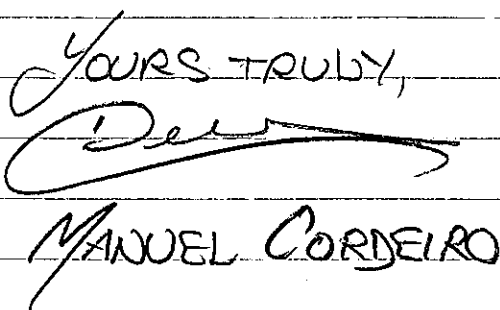 YOURS TRULY,
MANUEL CORDEIRO